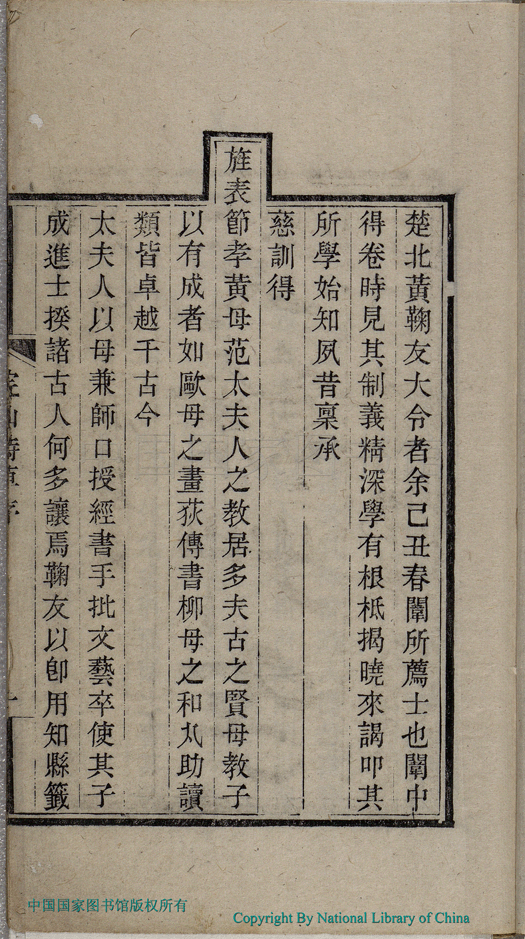 楚北黃鞠友大令者余己丑春闈所薦士也闈中
得卷時見其制義精深學有根柢揭曉來謁叩其
所學始知夙昔稟承
慈訓得
旌表節孝黃母范太夫人之教居多夫古之賢母教子
以有成者如歐母之畫荻傳書柳母之和丸助讀
類皆卓越千古今
太夫人以母兼師口授經書手批文藝卒使其子
成進士揆諸古人何多讓焉鞠友以卽用知縣籤
中国国家图书馆版权所有
Copyright By National Library of China